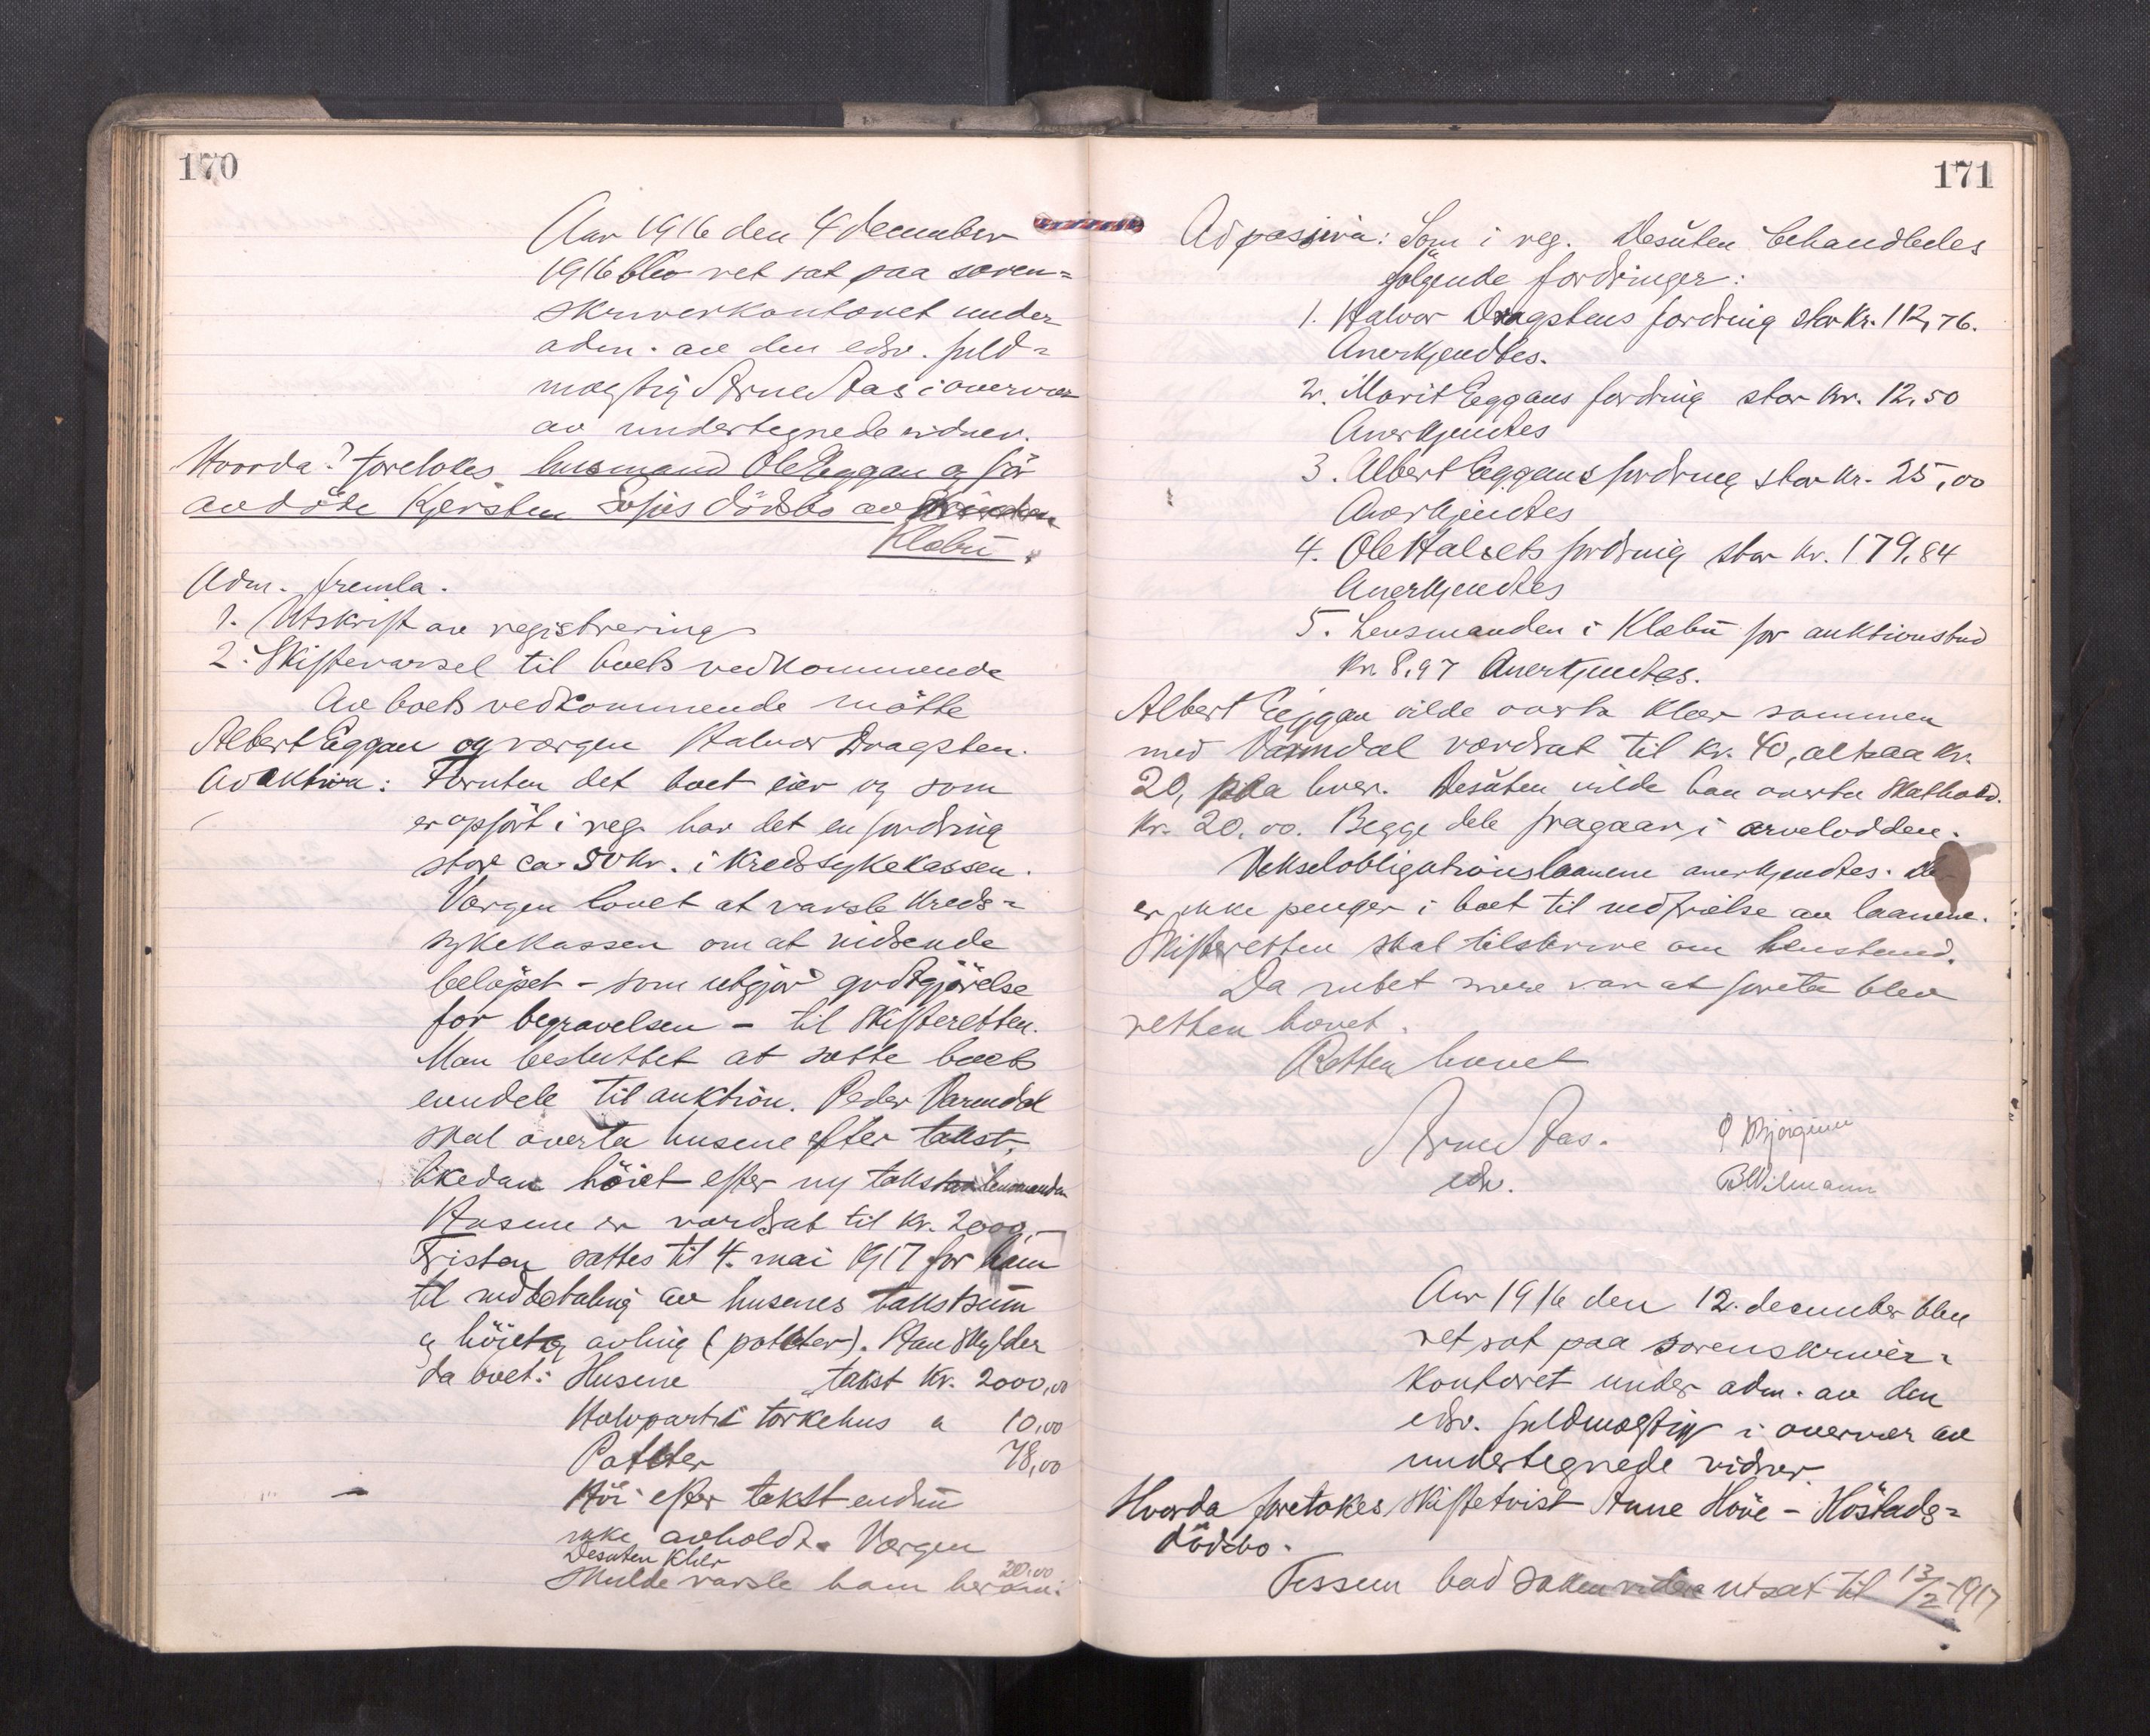 170
Aar 1916 den 4 december
1916 blev ret sat paa soren=
skriverkontoret under
adm. av den edsv. fuld=
mægtig Arne Aas i overvær
av undertegnede vidner.
Hvorda? foretokes husmand Ole Eggan og før
avdöde Kjersten Sofies dödsbo av
Klæbü.
Adm. fremla.
1. Utskrift av registrering
2. Skiftevarsel til boets vedkommende
Av boets vedkommende mötte
Albert Eggan og værgen Halvor Dragsten.
Ad aktiva: Foruten det boet eier og som
er opfört i reg. har det en fordring
stor ca 50 kr. i Kredssykekassen.
Værgen lovet at varsle Kreds=
sykekassen om at indsende
belöpet - som utgjör godtgjörelse
for begravelsen - til Skifteretten.
Man besluttet at sætte boets
eiendele til auktion. Peder Varmdal
skal overta husene efter takst,
likedan höiet efter ny takst lensmanden
Husene er værdsat til kr. 2000,-
Fristen sattes til 4. mai 1917 for ham
til indbetaling av husenes takstsum
og höiet og avling (poteter). Han skylder
da boet: Husene takst kr. 2000,00
Halvparti törkehus a 10,00
Poteter 78,00
Höi efter takst endnü
ikke avholdt. Værgen
Desuten klær 20.00
skulde varsle ham herom.
171
Ad passiva: Som i reg. Desüten behandledes
følgende fordringer:
1. Halvor Dragstens fordring stor kr. 112,76.
Anerkjendtes.
2. Marit Eggans fordring stor kr. 12,50
Anerkjendtes
3. Albert Eggans fordring stor kr. 25,00
Anerkjendtes
4. Ole Halsets fordring stor kr. 179,84
Anerkjendtes
5. Lensmanden i Klæbü for auktionsbud
kr. 8,97 Anerkjendtes.
Albert Eggan vilde overta klær sammen
med Varmdal værdsat til kr. 40, altsaa kr.
20, paa hver. Desüten vilde han overta Skathold.
kr. 20.00. Begge dele fragaar i arvelodden.
Vekselobligationslaanene anerkjendtes. De
er ikke penger i boet til indfrielse av laanene.
Skifteretten skal tilskrive om henstand.
Da intet mere var at foreta blev
retten hævet.
Retten hævet
Arne Aas.
edsv.
B. Wilmann
Aar 1916 den 12. december blev
ret sat paa sorenskriver=
kontoret under adm. av den
edsv. fuldmægtig i overvær av
undertegnede vidner.
Hvorda foretokes Skiftetvist Anne Höve - Höstads=
dödsbo.
Fessum bad saken videre utsat til 13/2-1917